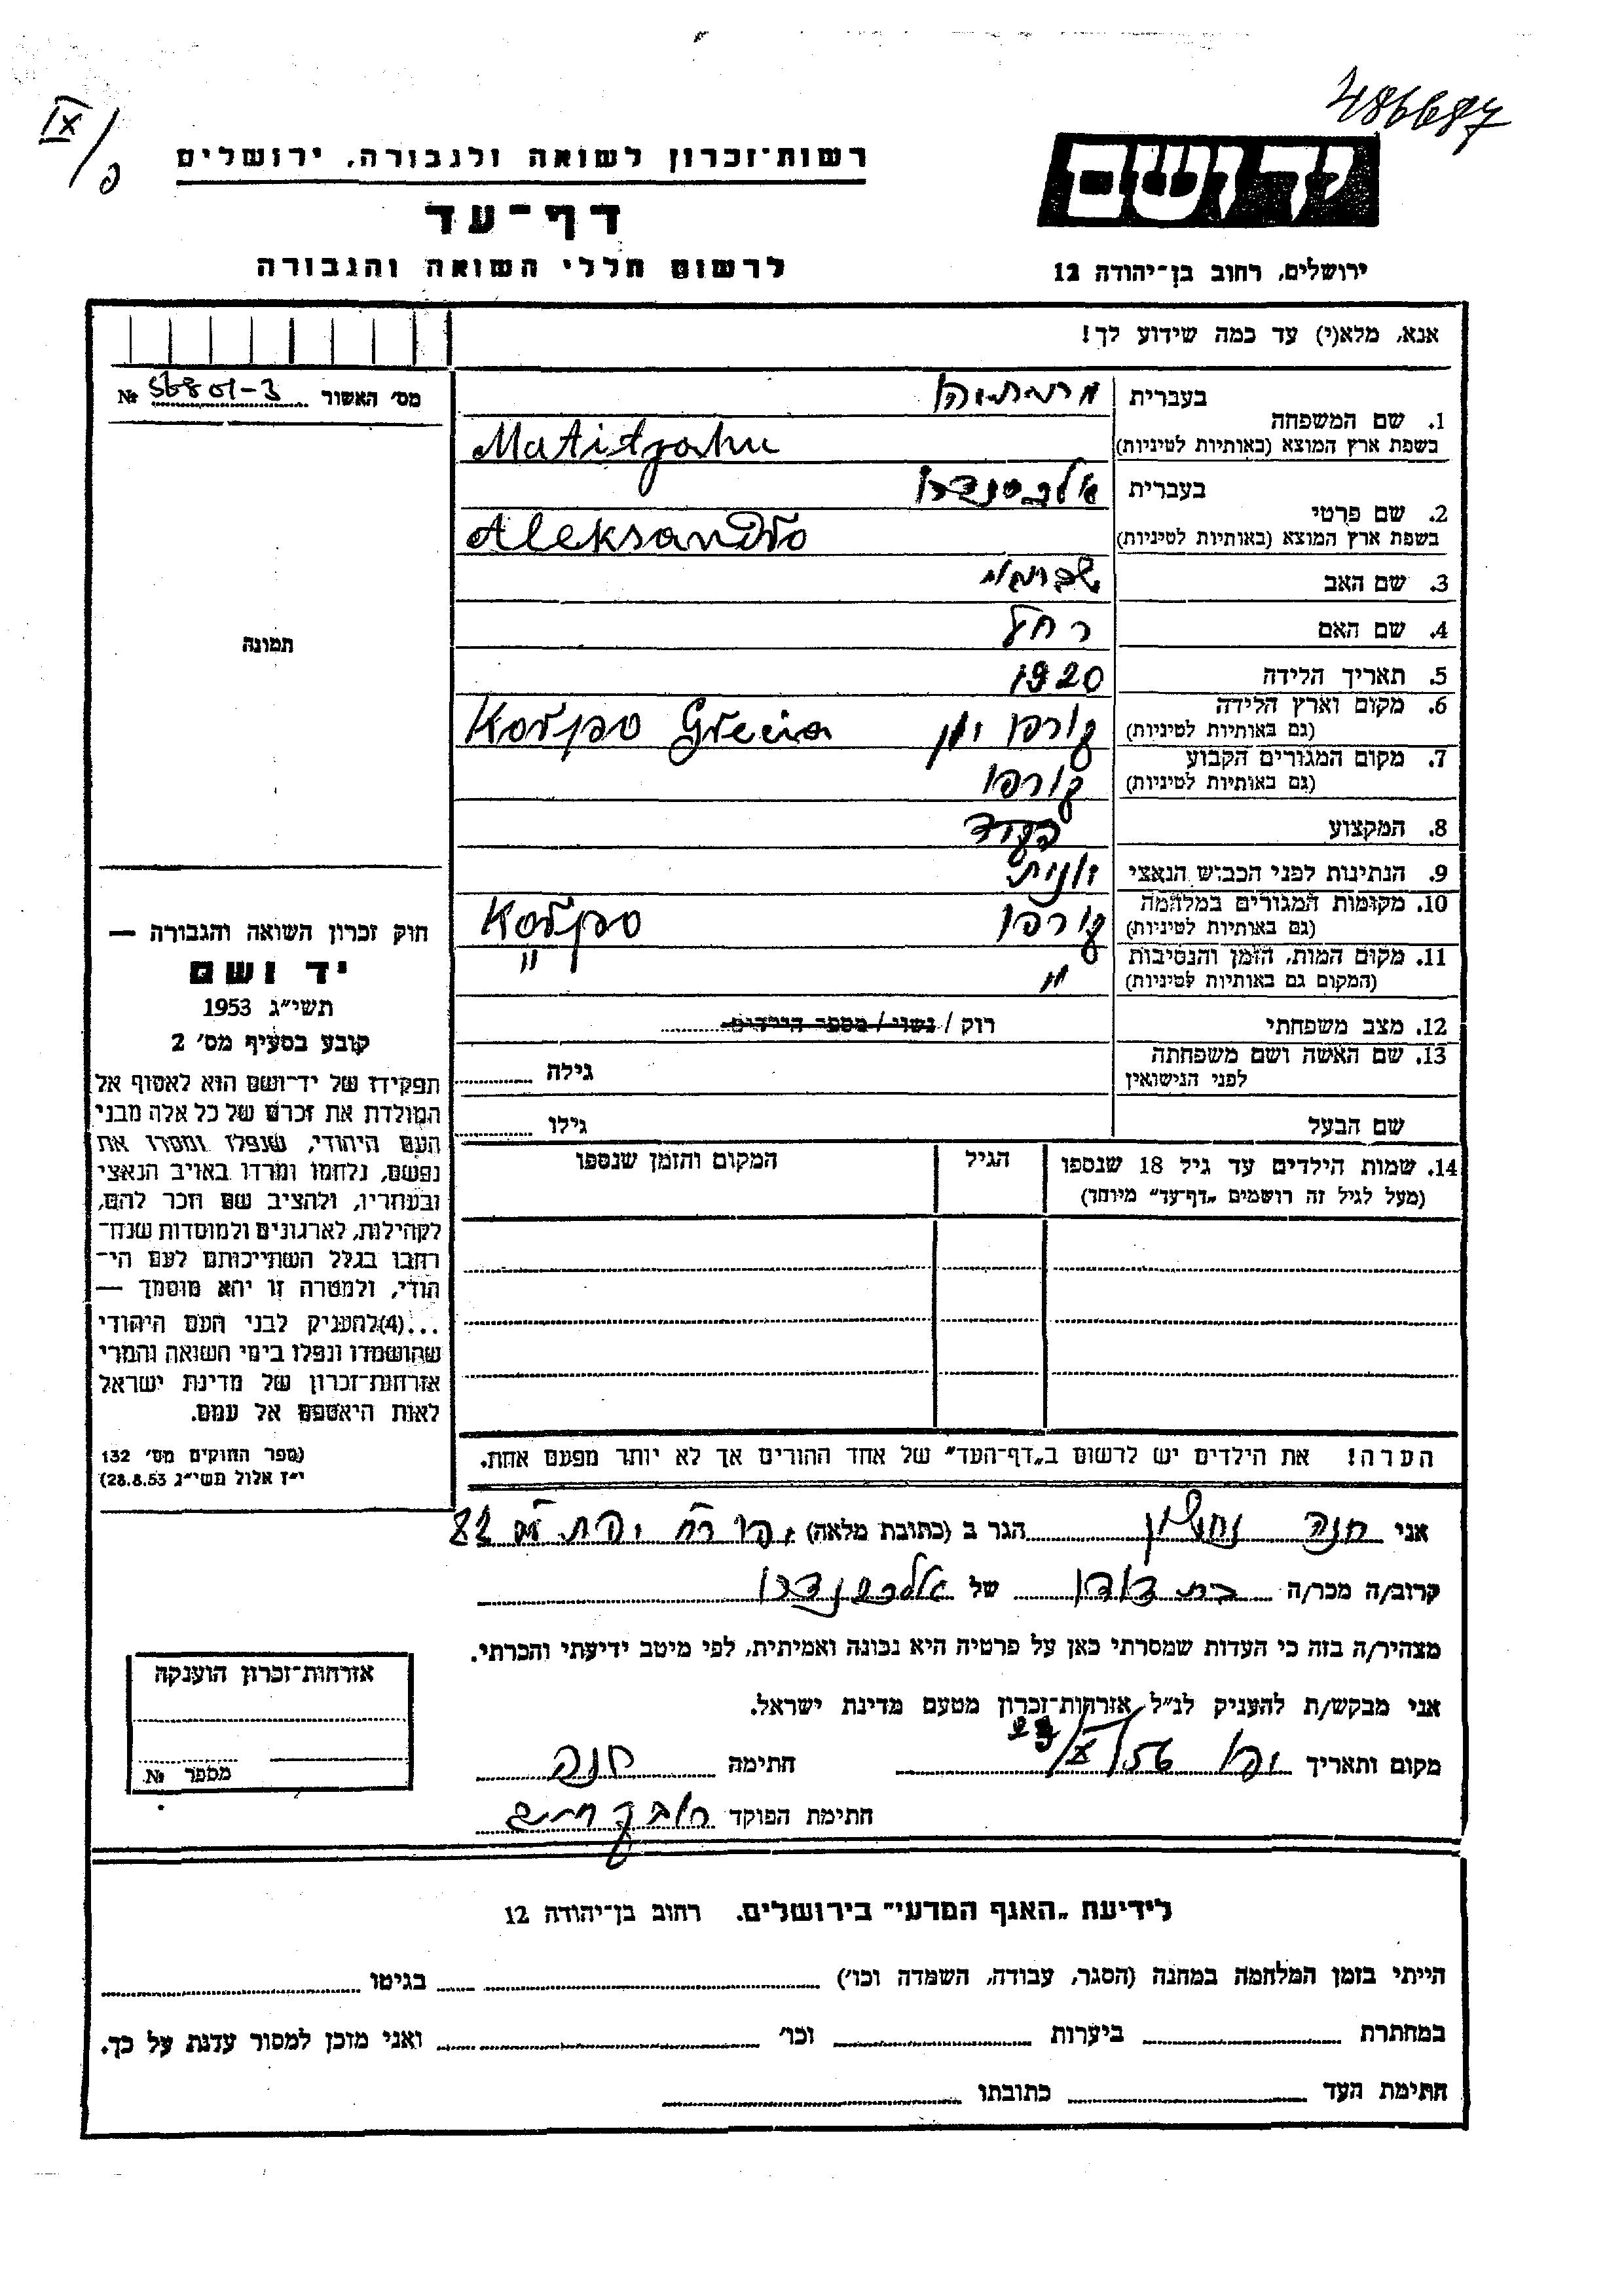 486687
IX/פ
יד ושם
ירושלים, רחוב בן-יהודה 12
רשות-זכרון לשואה ולגבורה, ירושלים
דף-עד
לרשום חללי השואה והגבורה
אנא, מלא(י) עד כמה שידוע לך!
מס' האשור № 56801-3
תמונה
1. שם המשפחה
בעברית מתתיהו
בשפת ארץ המוצא (באותיות לטיניות) Matitjahu
2. שם פרטי
בעברית אלכסנדרו
בשפת ארץ המוצא (באותיות לטיניות) Aleksandro
3. שם האב שבתאי
4. שם האם רחל
5. תאריך הלידה 1920
6. מקום וארץ הלידה קורפו יון Korpo Grecia
(גם באותיות לטיניות)
7. מקום המגורים הקבוע קורפו
(גם באותיות לטיניות)
8. המקצוע
9. הנתינות לפני הכבוש הנאצי יונית
10. מקומות המגורים במלחמה קורפו Korpo
(גם באותיות לטיניות)
11. מקום המות, הזמן והנסיבות " "
(המקום גם באותיות לטיניות)
12. מצב משפחתי רוק / נשוי / מספר הילדים
13. שם האשה ושם משפחתה גילה
לפני הנישואין
שם הבעל גילו
14. שמות הילדים עד גיל 18 שנספו הגיל המקום והזמן שנספו
(מעל לגיל זה רושמים „דף-עד" מיוחד)
הערה! את הילדים יש לרשום ב„דף-העד" של אחד ההורים אך לא יותר מפעם אחת.
חוק זכרון השואה והגבורה —
יד ושם
תשי"ג 1953
קובע בסעיף מס' 2
תפקידו של יד-ושם הוא לאסוף אל
המולדת את זכרם של כל אלה מבני
העם היהודי, שנפלו ומסרו את
נפשם, נלחמו ומרדו באויב הנאצי
ובעוזריו, ולהציב שם וזכר להם,
לקהילות, לארגונים ולמוסדות שנח־
רבו בגלל השתייכותם לעם הי־
הודי, ולמטרה זו יהא מוסמך —
...(4)להעניק לבני העם היהודי
שהושמדו ונפלו בימי השואה והמרי
אזרחות-זכרון של מדינת ישראל
לאות היאספם אל עמם.
(ספר החוקים מס' 132
י"ז אלול תשי"ג 28.8.53)
אני חנה הגר ב (כתובת מלאה) יפו רח יפת 82
קרוב/ה מכר/ה בת דודו של אלכסנדרו
מצהיר/ה בזה כי העדות שמסרתי כאן על פרטיה היא נכונה ואמיתית, לפי מיטב ידיעתי והכרתי.
אני מבקש/ת להעניק לנ"ל אזרחות-זכרון מטעם מדינת ישראל.
מקום ותאריך יפו X/56 חתימה חנה
חתימת הפוקד
אזרחות-זכרון הוענקה
מספר №
לידיעת „האגף המדעי" בירושלים. רחוב בן-יהודה 12
הייתי בזמן המלחמה במחנה (הסגר, עבודה, השמדה וכו') בגיטו
במחתרת ביערות וכו' ואני מוכן למסור עדות על כך.
חתימת העד כתובתו